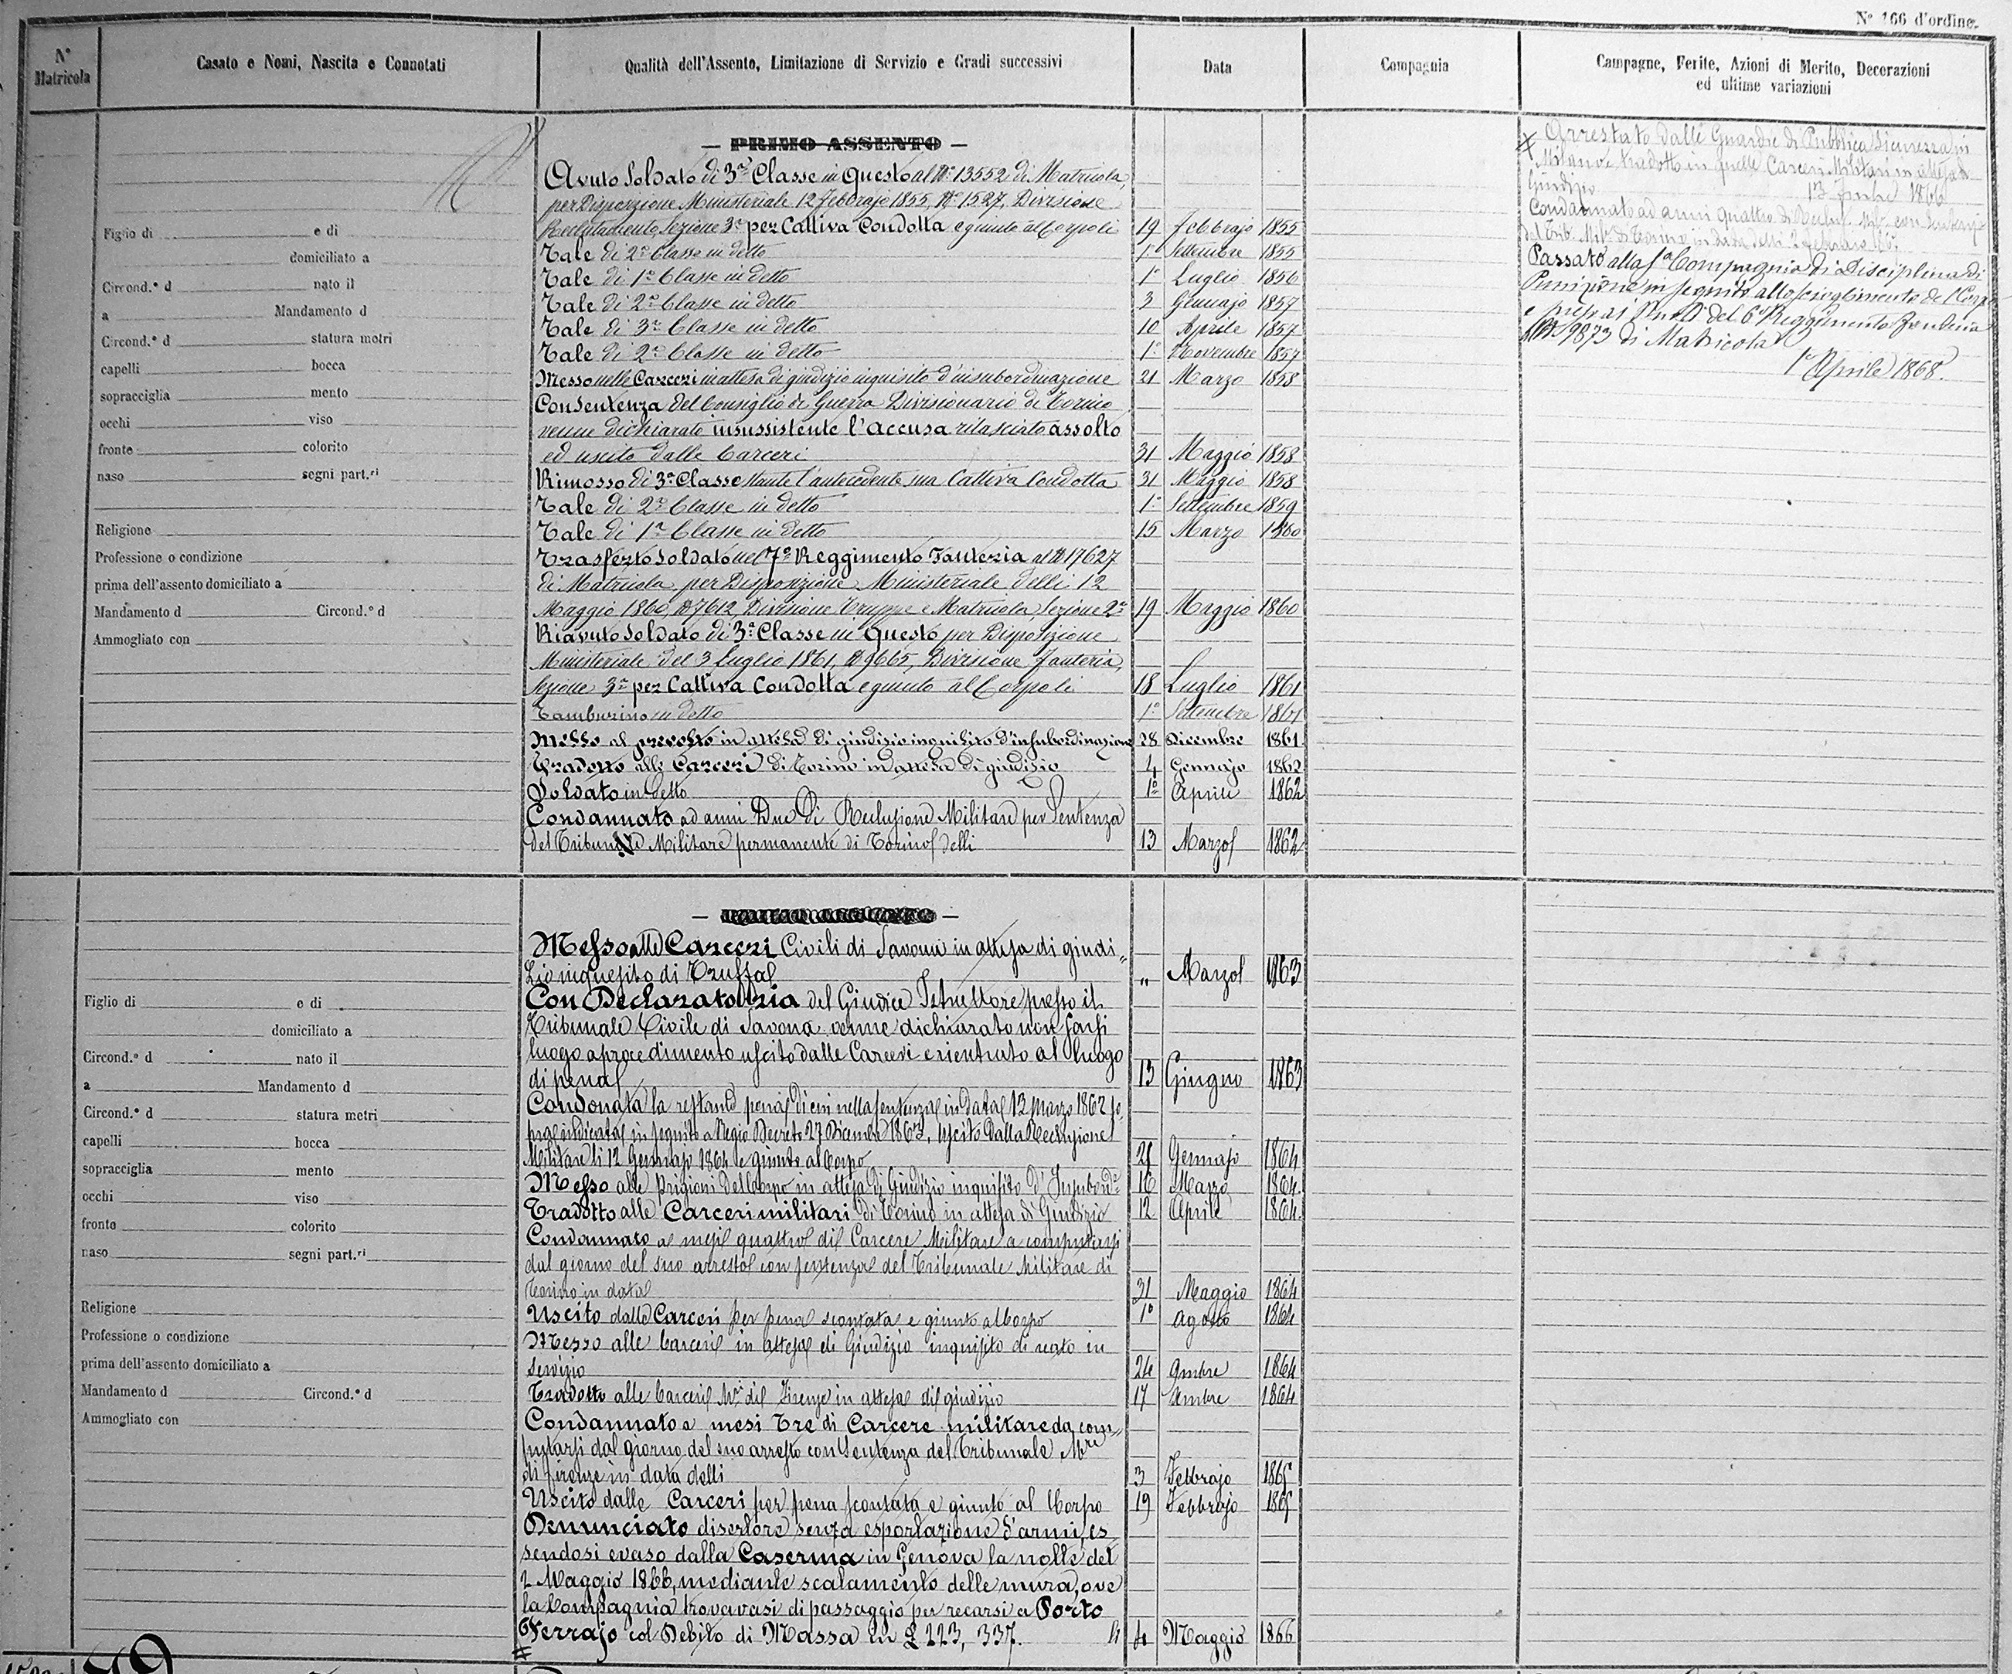 N° 166 d'ordine.
N° Matricola
Casato e Nomi, Nascita e Connotati
Qualità dell'Assento, Limitazione di Servizio e Gradi successivi
Data
Compagnia
Campagne, Ferite, Azioni di Merito, Decorazioni
ed ultime variazioni
— PRIMO ASSENTO —
Avuto Soldato di 3ª Classe in Questo al N° 13552 di Matricola,
per Disposizione Ministeriale 12 Febbrajo 1855, N° 1527, Divisione
Reclutamento Sezione 3ª per Cattiva Condotta e giunto al Corpo li 19 Febbrajo 1855
Tale di 2ª Classe in detto 1° Settembre 1855
Tale di 1ª Classe in detto 1° Luglio 1856
Tale di 2ª Classe in detto 3 Gennajo 1857
Tale di 3ª Classe in detto 10 Aprile 1857
Tale di 2ª Classe in detto 1° Novembre 1857
Messo nelle Carceri in attesa di giudizio inquisito d'insubordinazione 21 Marzo 1858
Con Sentenza del Consiglio di Guerra Divisionario di Torino
venne dichiarato insussistente l'accusa rilasciato assolto
ed uscito dalle Carceri 31 Maggio 1858
Rimosso di 3ª Classe stante l'antecedente sua Cattiva Condotta 31 Maggio 1858
Tale di 2ª Classe in detto 1° Settembre 1859
Tale di 1ª Classe in detto 15 Marzo 1860
Trasferto Soldato nel 7° Reggimento Fanteria al N° 17627
di Matricola per Disposizione Ministeriale delli 12
Maggio 1860 N° 7612, Divisione Truppe e Matricola, Sezione 2ª 19 Maggio 1860
Riavuto Soldato di 3ª Classe in Questo per Disposizione
Ministeriale del 3 Luglio 1861, N° 9665, Divisione Fanteria,
Sezione 3ª per Cattiva Condotta e giunto al Corpo li 18 Luglio 1861
Tamburino in detto 1° Settembre 1861
Messo al prevosto in attesa di giudizio inquisito d'insubordinazione 28 Dicembre 1861
Tradotto alle Carceri di Torino in attesa di giudizio 4 Gennajo 1862
Soldato in detto 1° Aprile 1862
Condannato ad anni Due di Reclusione Militare per Sentenza
del Tribunale Militare permanente di Torino delli 13 Marzo 1862
Arrestato dalle Guardie di Pubblica Sicurezza in
Milano e tradotto in quelle Carceri Militari in attesa di
Giudizio
1866
Condannato ad anni quattro di Reclus. Mil. con Sentenza
del Trib. Mil. di Torino in data delli
Passato alla 1ª Compagnia di Disciplina di
Punizione in seguito allo scioglimento del Corpo
e presso del 6° Reggimento Fanteria
al N° 9873 di Matricola
1° Aprile 1868.
Figlio di e di
domiciliato a
Circond.° d nato il
a Mandamento d
Circond.° d statura metri
capelli bocca
sopracciglia mento
occhi viso
fronte colorito
naso segni part.ri
Religione
Professione o condizione
prima dell'assento domiciliato a
Mandamento d Circond.° d
Ammogliato con
Messo alle Carceri Civili di Savona in attesa di giudi„
zio inquisito di Truffa „ Marzo 1863
Con Declaratoria del Giudice Istruttore presso il
Tribunale Civile di Savona venne dichiarato non farsi
luogo a procedimento uscito dalle Carceri e rientrato al luogo
di pena 13 Giugno 1863
Condonata la restante pena di cui nella sentenza in data 13 Marzo 1862 so„
praindicata in seguito a Regio Decreto 27 Dicembre 1863, uscito dalla Reclusione
Militare li 12 Gennajo 1864 e giunto al Corpo 21 Gennajo 1864
Messo alle prigioni del Corpo in attesa di Giudizio inquisito d'Insubord.e 16 Marzo 1864
Tradotto alle Carceri militari di Torino in attesa di Giudizio 12 Aprile 1864
Condannato a mesi quattro di Carcere Militare a computarsi
dal giorno del suo arresto con sentenza del Tribunale Militare di
Torino in data 31 Maggio 1864
Uscito dalle Carceri per pena scontata e giunto al Corpo 1° Agosto 1864
Messo alle Carceri in attesa di Giudizio inquisito di reato in
servizio 24 9mbre 1864
Tradotto alle Carceri M.i di Firenze in attesa di giudizio 17 Xmbre 1864
Condannato a mesi Tre di Carcere militare da com„
putarsi dal giorno del suo arresto con Sentenza del Tribunale M.re
di Firenze in data delli 3 Febbrajo 1865
Uscito dalle Carceri per pena scontata e giunto al Corpo 19 Febbrajo 1865
Denunciato disertore senza esportazione d'armi, es
sendosi evaso dalla Caserma in Genova la notte del
2 Maggio 1866, mediante scalamento delle mura, ove
la Compagnia trovavasi di passaggio per recarsi a Porto
Ferrajo col Debito di Massa in £ 223, 337. li 4 Maggio 1866
Figlio di e di
domiciliato a
Circond.° d nato il
a Mandamento d
Circond.° d statura metri
capelli bocca
sopracciglia mento
occhi viso
fronte colorito
naso segni part.ri
Religione
Professione o condizione
prima dell'assento domiciliato a
Mandamento d Circond.° d
Ammogliato con